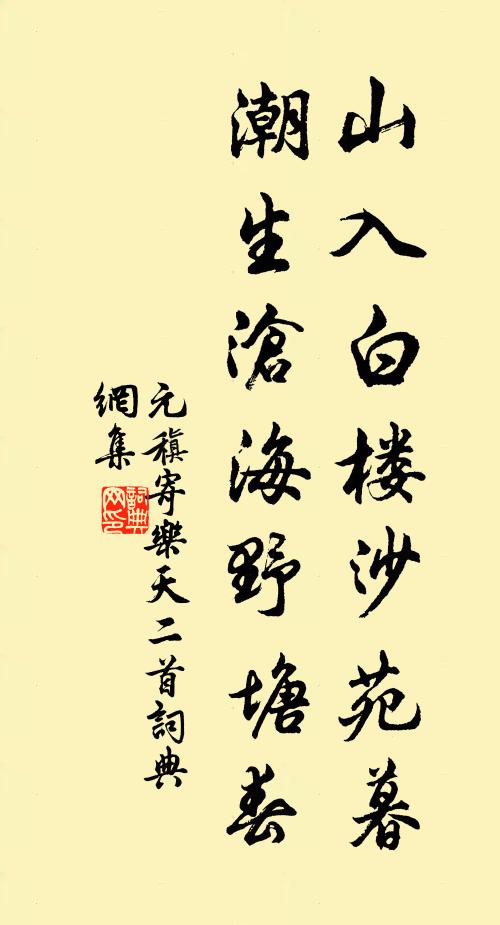 山入白楼沙苑暮
潮生滄海野塘春
元稹寄樂天二首詞典
網集
詞典
网印